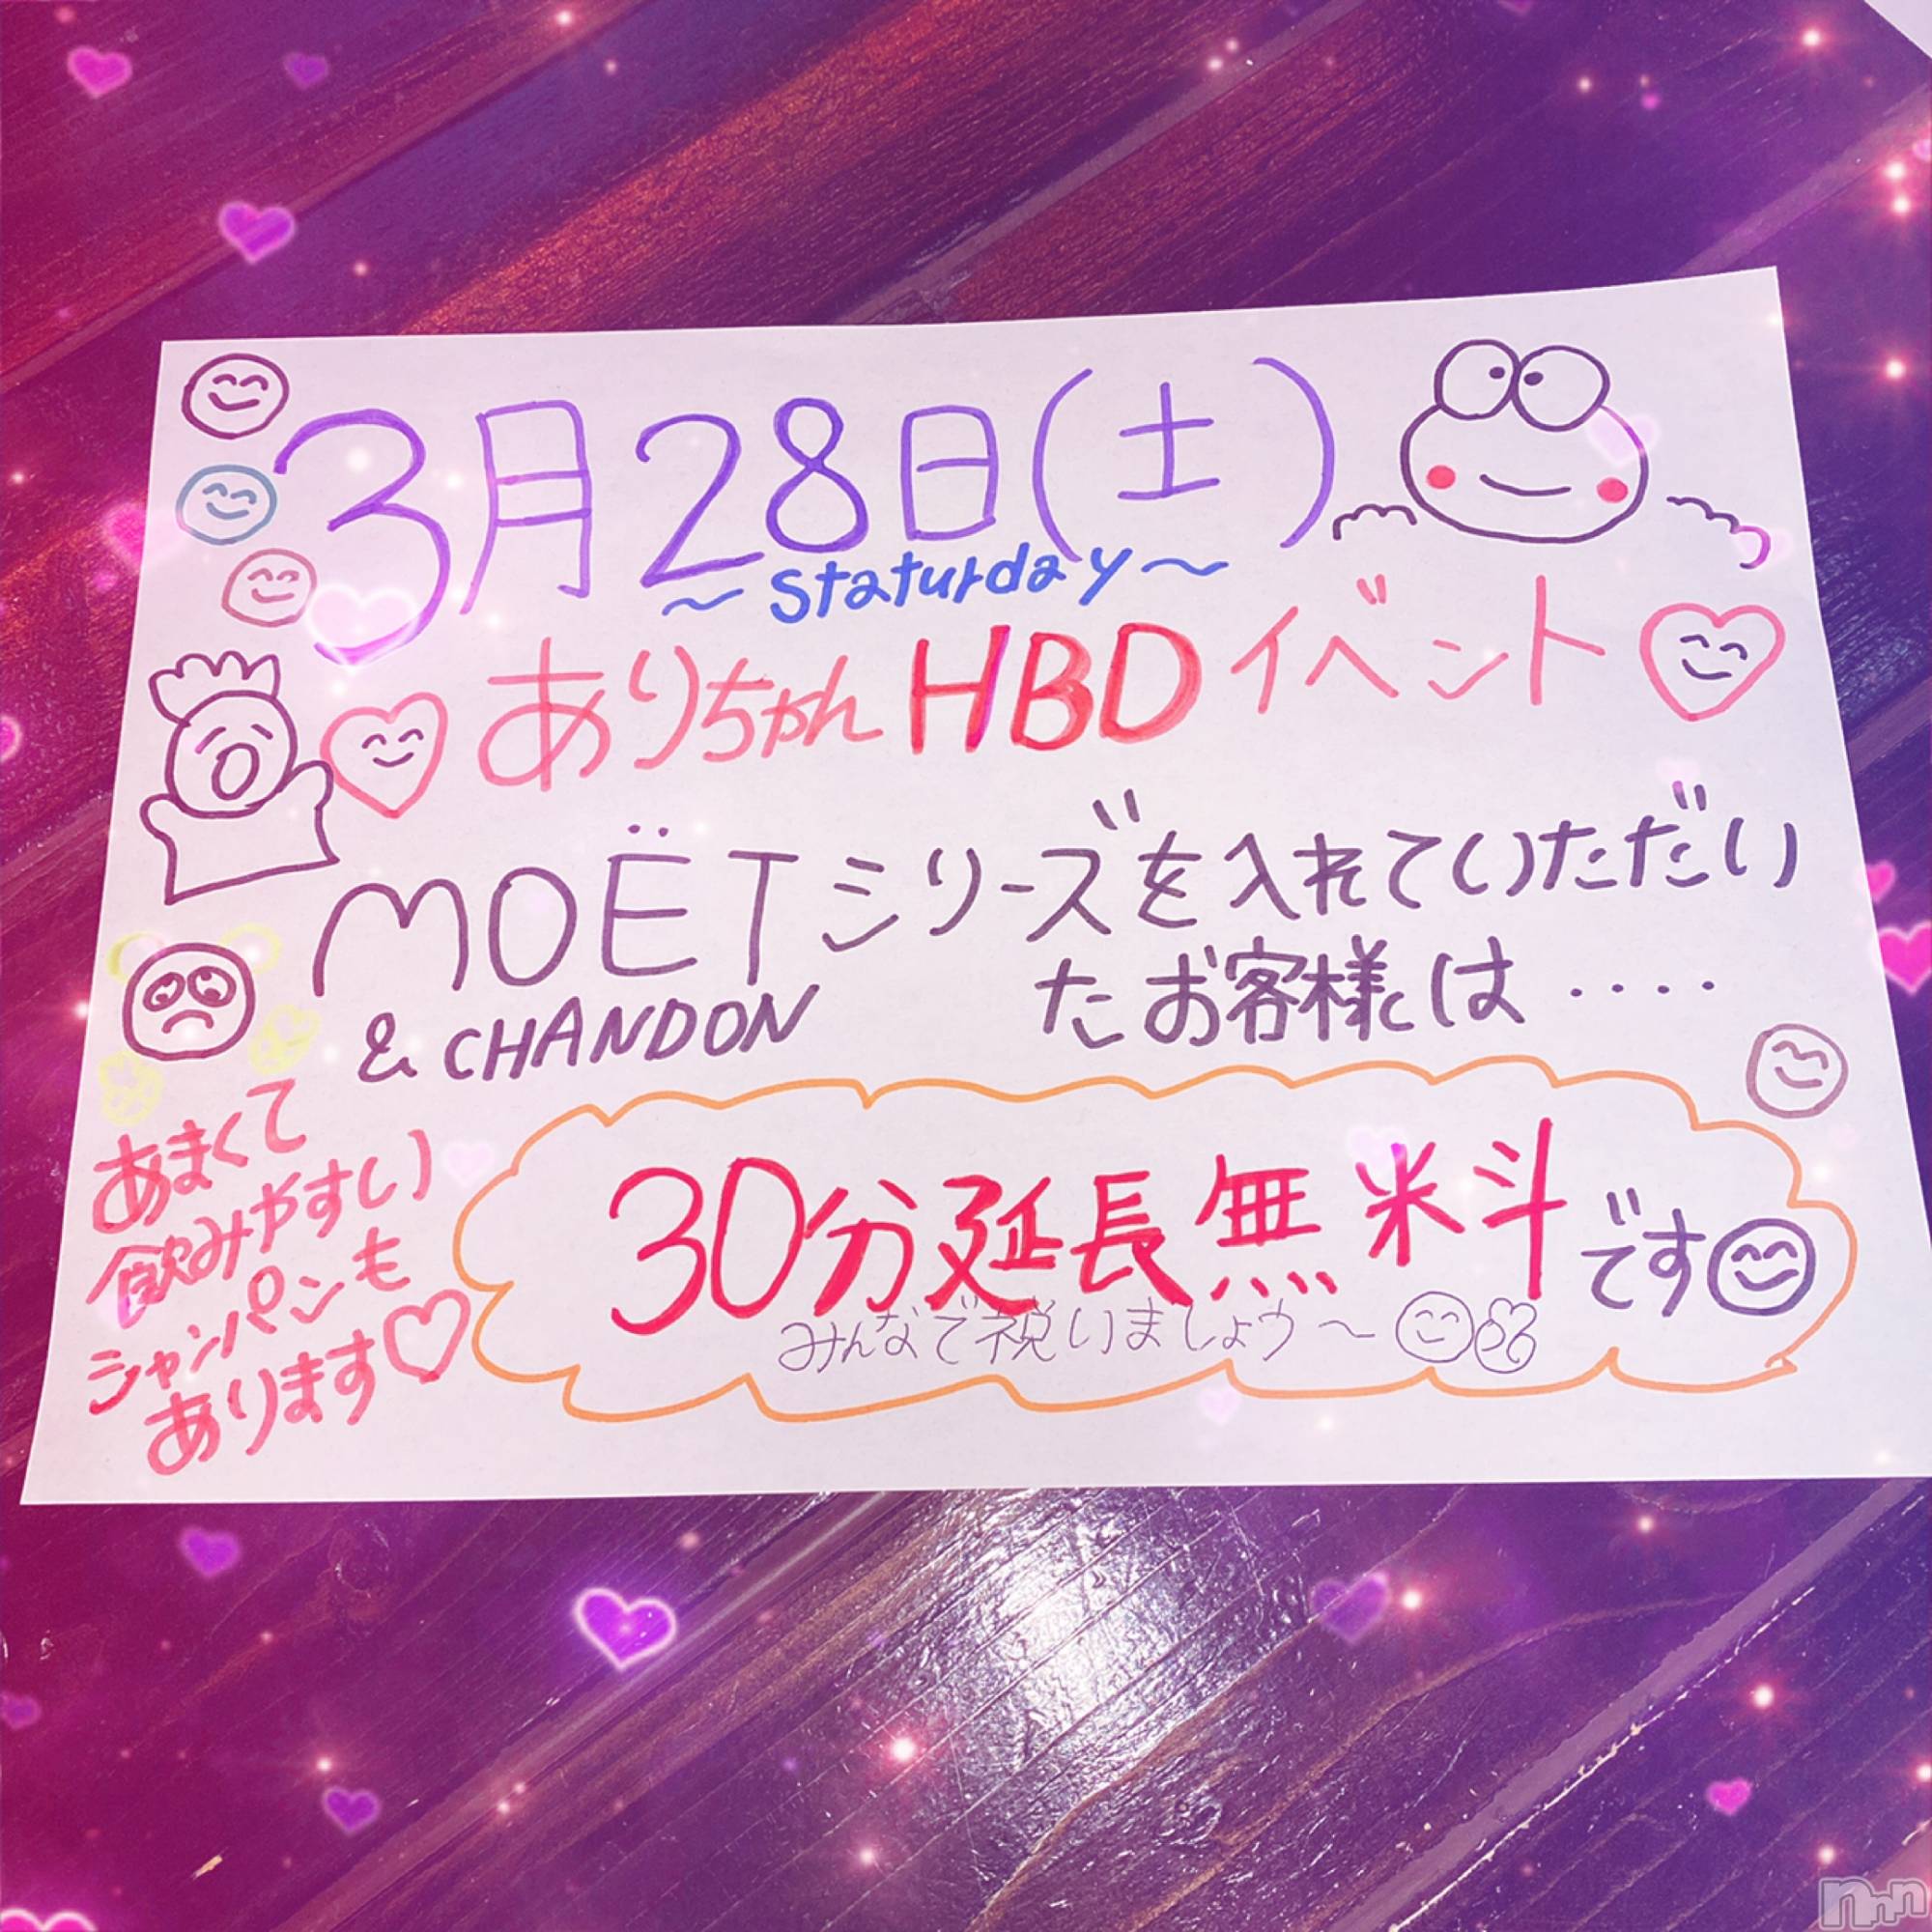 3月28日(土)
～Staturday～
ありちゃんHBDイベント
MOËTシリーズを入れていただい
& CHANDON
たお客様は....
あまくて
飲みやすい
シャンパンも
あります
30分延長無料です
みんなで祝いましょう～
nmn